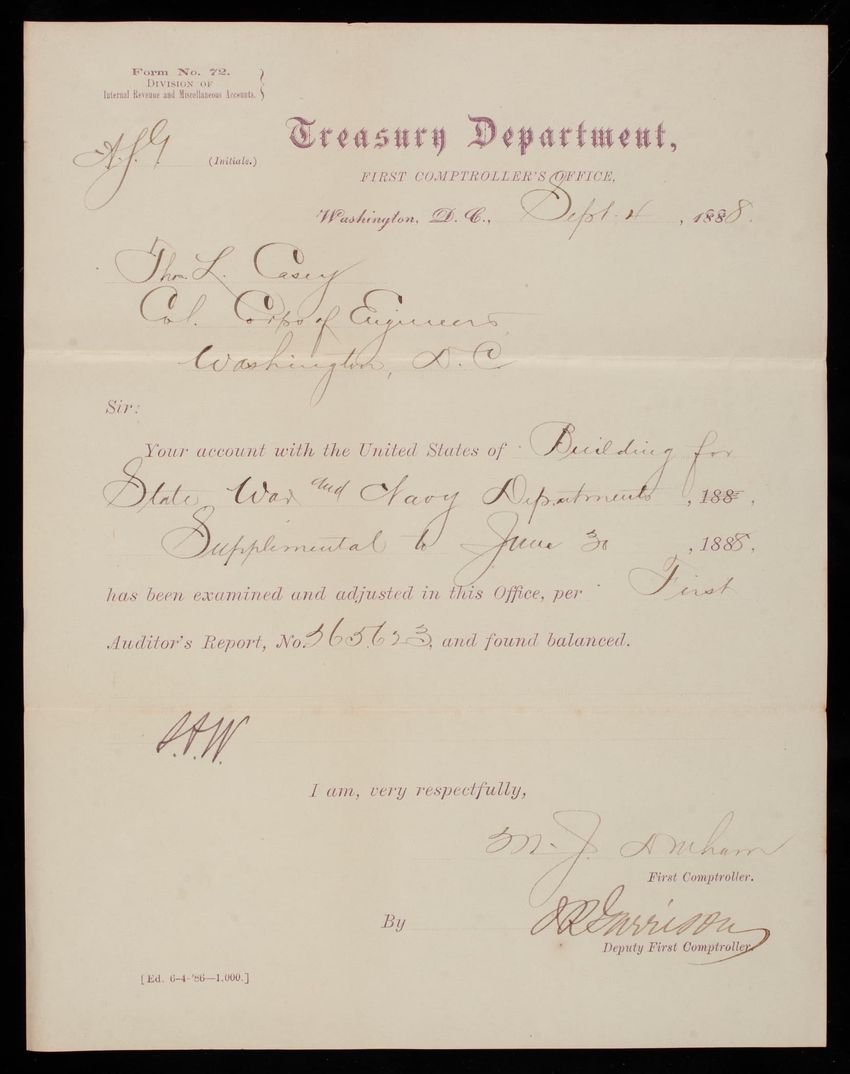 Form No. 72.
DIVISION OF
Internal Revenue and Miscellaneous Accounts.
(Initials.)
Treasury Department,
FIRST COMPTROLLER'S OFFICE,
Washington, D. C., Sept. 4, 1888.
Thos. L. Casey
Col. Corps of Engineers
Washington, D. C.
Sir:
Your account with the United States of Building for
State War and Navy Departments, 188 ,
Supplimental to June 30, 1888,
has been examined and adjusted in this Office, per First
Auditor's Report, No. 365623, and found balanced.
S.A.W.
I am, very respectfully,
M. J. Durham
First Comptroller.
By J R Garrison
Deputy First Comptroller.
[Ed. 6-4-'86—1,000.]